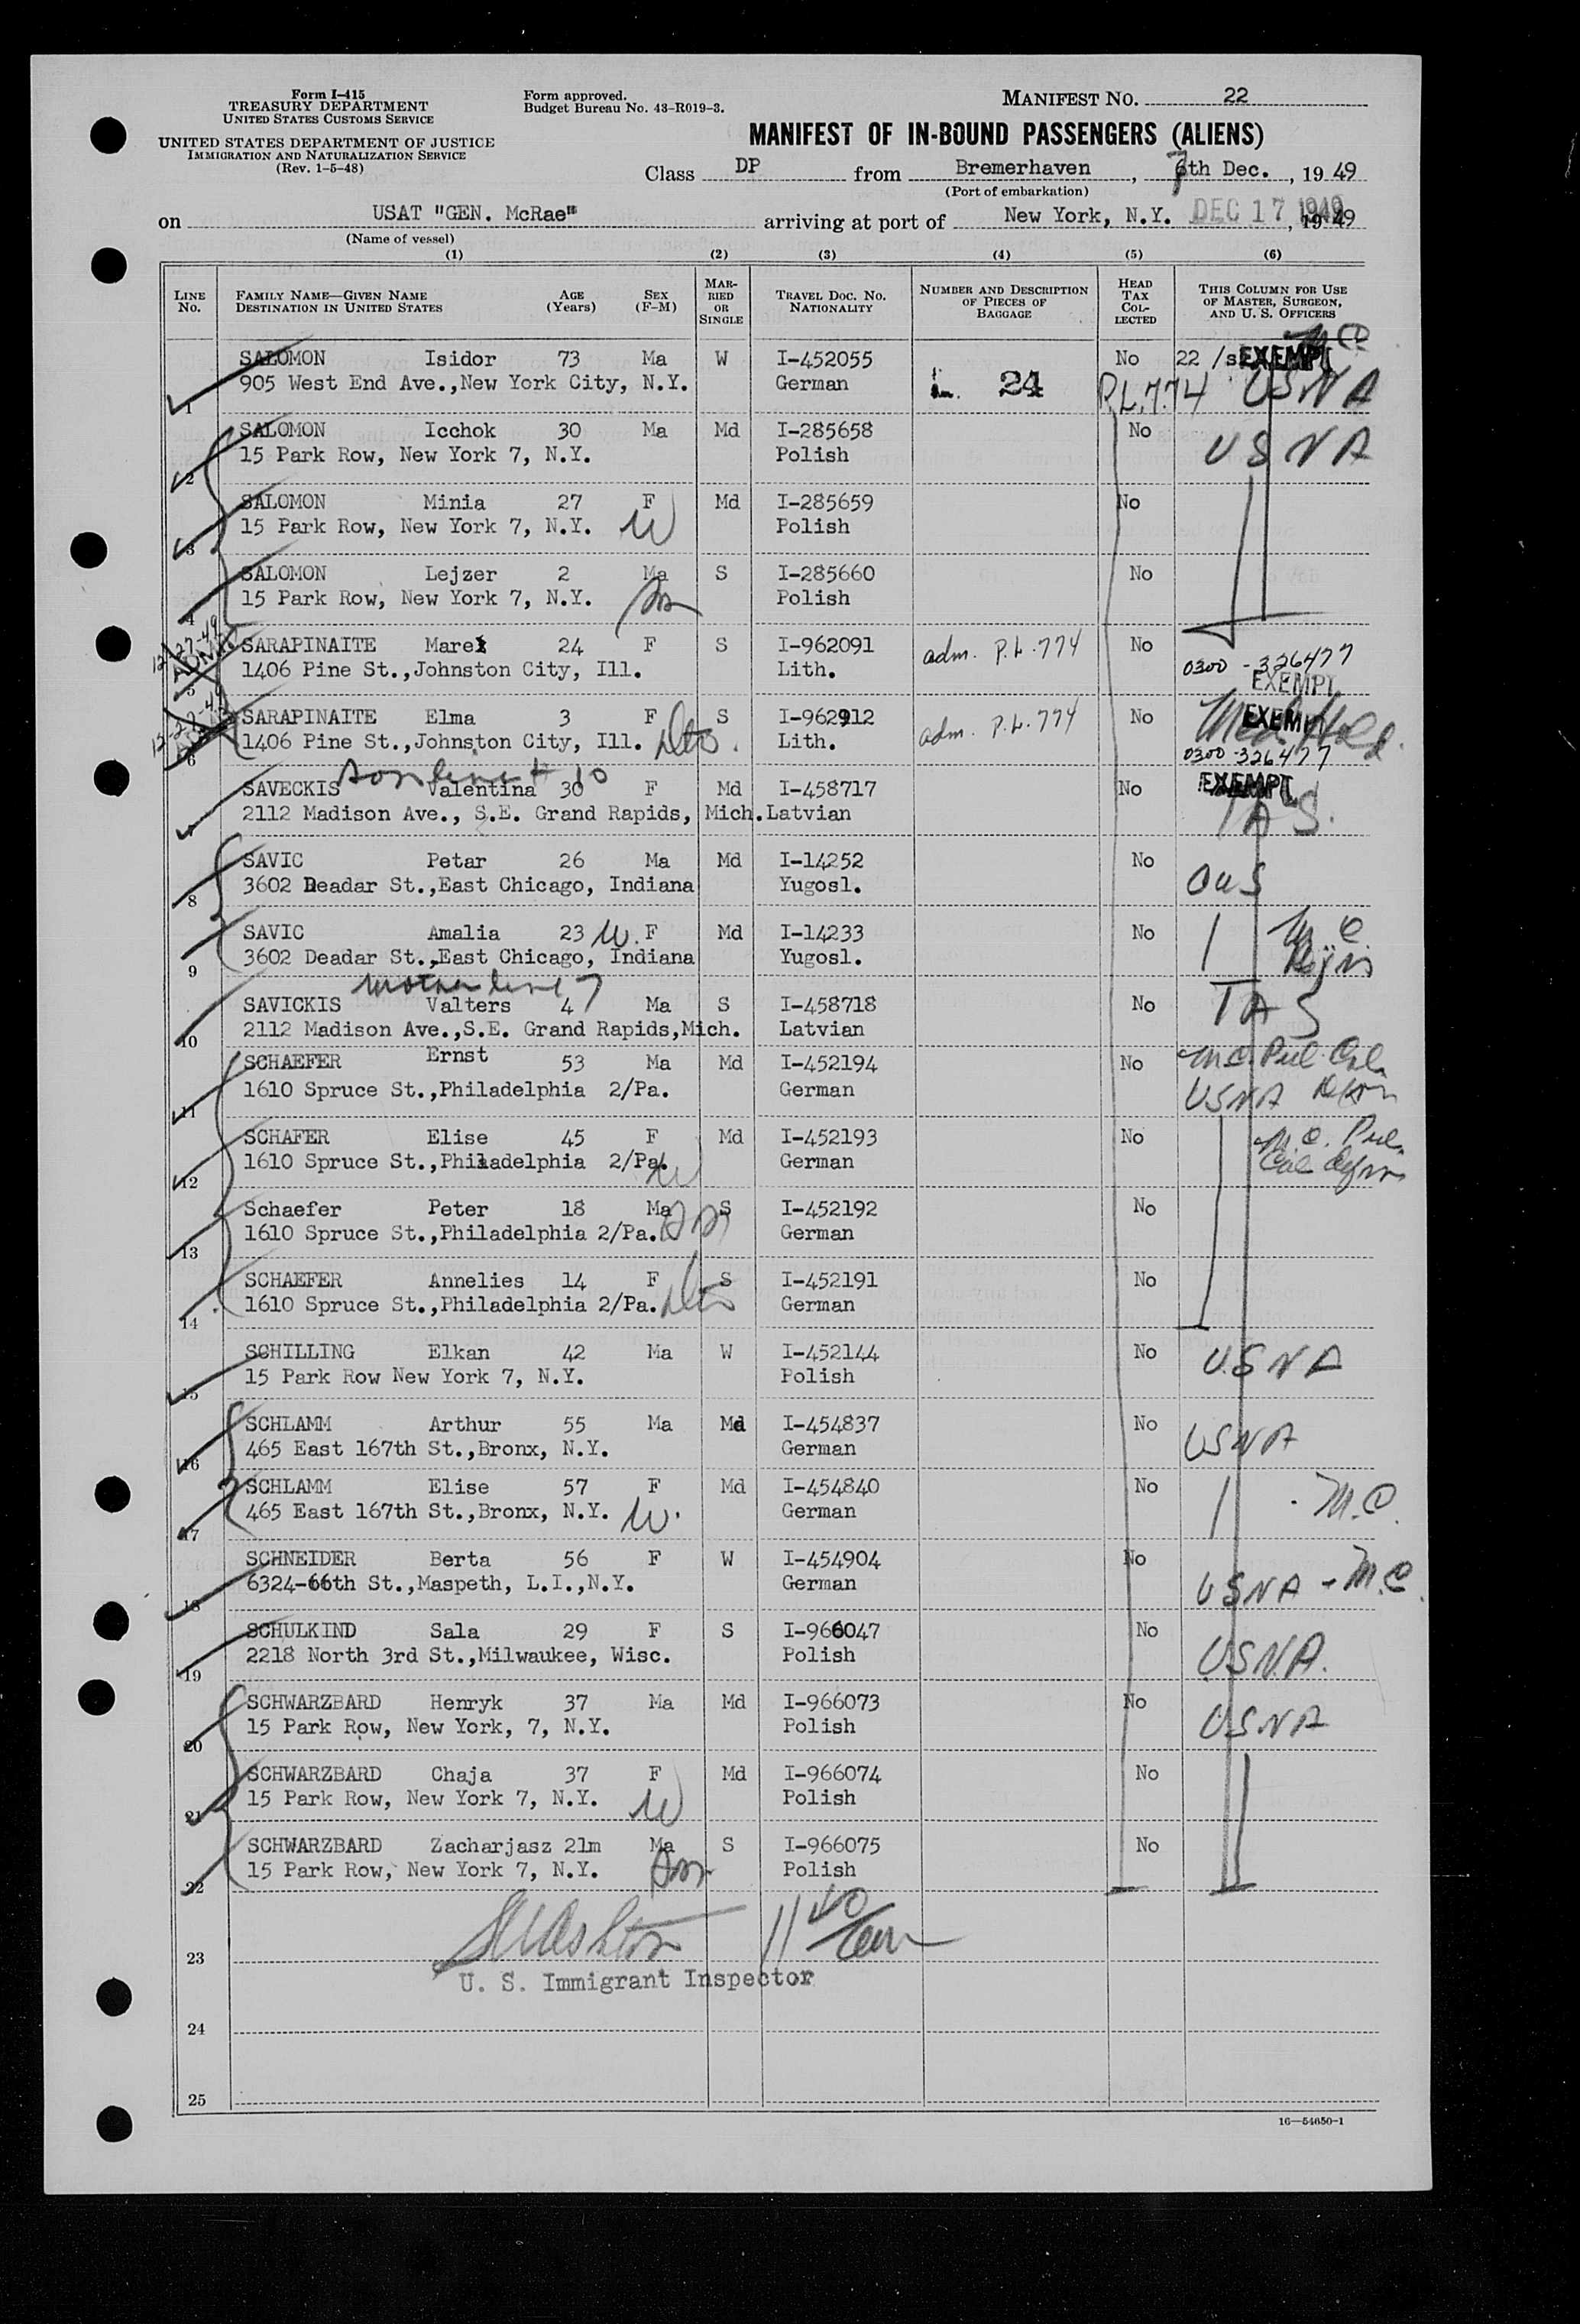 Form I-415
TREASURY DEPARTMENT
UNITED STATES CUSTOMS SERVICE
UNITED STATES DEPARTMENT OF JUSTICE
IMMIGRATION AND NATURALIZATION SERVICE
(Rev. 1-5-48)
Form approved.
Budget Bureau No. 43-R019-3.
MANIFEST NO. 22
MANIFEST OF IN-BOUND PASSENGERS (ALIENS)
Class DP from Bremerhaven, 7th Dec., 19 49
(Port of embarkation)
on USAT "GEN. McRae" arriving at port of New York, N.Y. DEC 17 1949, 19 49
(Name of vessel)
(1) (2) (3) (4) (5) (6)
LINE NO.
FAMILY NAME—GIVEN NAME
DESTINATION IN UNITED STATES
AGE (Years)
SEX (F-M)
MARRIED OR SINGLE
TRAVEL DOC. NO. NATIONALITY
NUMBER AND DESCRIPTION OF PIECES OF BAGGAGE
HEAD TAX COLLECTED
THIS COLUMN FOR USE OF MASTER, SURGEON, AND U. S. OFFICERS
SALOMON Isidor 73 Ma W I-452055 No 22 /s EXEMPT M.C
1 905 West End Ave.,New York City, N.Y. German 24 P.L.774 USNA
SALOMON Icchok 30 Ma Md I-285658 No USNA
2 15 Park Row, New York 7, N.Y. Polish
SALOMON Minia 27 F Md I-285659 No
3 15 Park Row, New York 7, N.Y. W Polish
SALOMON Lejzer 2 Ma S I-285660 No
4 15 Park Row, New York 7, N.Y. Son Polish
12-27-49 ADMIT
SARAPINAITE Mare 24 F S I-962091 adm. P.L.774 No 0300-326477
5 1406 Pine St.,Johnston City, Ill. Lith. EXEMPT
SARAPINAITE Elma 3 F S I-962912 adm. P.L.774 No EXEMPT Med. Hold.
6 1406 Pine St.,Johnston City, Ill. Dto. Lith. 0300-326477
Son line # 10
SAVECKIS Valentina 30 F Md I-458717 No EXEMPT
7 2112 Madison Ave., S.E. Grand Rapids, Mich. Latvian IAS.
SAVIC Petar 26 Ma Md I-14252 No
8 3602 Deadar St.,East Chicago, Indiana Yugosl. OUS
SAVIC Amalia 23 W. F Md I-14233 No M.C.
9 3602 Deadar St.,East Chicago, Indiana Yugosl.
Mother line 7
SAVICKIS Valters 4 Ma S I-458718 No IAS
10 2112 Madison Ave.,S.E. Grand Rapids,Mich. Latvian
SCHAEFER Ernst 53 Ma Md I-452194 No M.C. Pul. Cal.
11 1610 Spruce St.,Philadelphia 2/Pa. German USNA
SCHAFER Elise 45 F Md I-452193 No M.C. Pul.
12 1610 Spruce St.,Philadelphia 2/Pa. W German
Schaefer Peter 18 Ma S I-452192 No
13 1610 Spruce St.,Philadelphia 2/Pa. Son German
SCHAEFER Annelies 14 F S I-452191 No
14 1610 Spruce St.,Philadelphia 2/Pa. Dto German
SCHILLING Elkan 42 Ma W I-452144 No USNA
15 15 Park Row New York 7, N.Y. Polish
SCHLAMM Arthur 55 Ma Md I-454837 No USNA
16 465 East 167th St.,Bronx, N.Y. German
SCHLAMM Elise 57 F Md I-454840 No M.C.
17 465 East 167th St.,Bronx, N.Y. W. German
SCHNEIDER Berta 56 F W I-454904 No
18 6324-66th St.,Maspeth, L.I.,N.Y. German USNA - M.C.
SCHULKIND Sala 29 F S I-966047 No
19 2218 North 3rd St.,Milwaukee, Wisc. Polish USNA.
SCHWARZBARD Henryk 37 Ma Md I-966073 No USNA
20 15 Park Row, New York, 7, N.Y. Polish
SCHWARZBARD Chaja 37 F Md I-966074 No
21 15 Park Row, New York 7, N.Y. W Polish
SCHWARZBARD Zacharjasz 21m Ma S I-966075 No
22 15 Park Row, New York 7, N.Y. Son Polish
23
U. S. Immigrant Inspector
24
25
16—54650-1